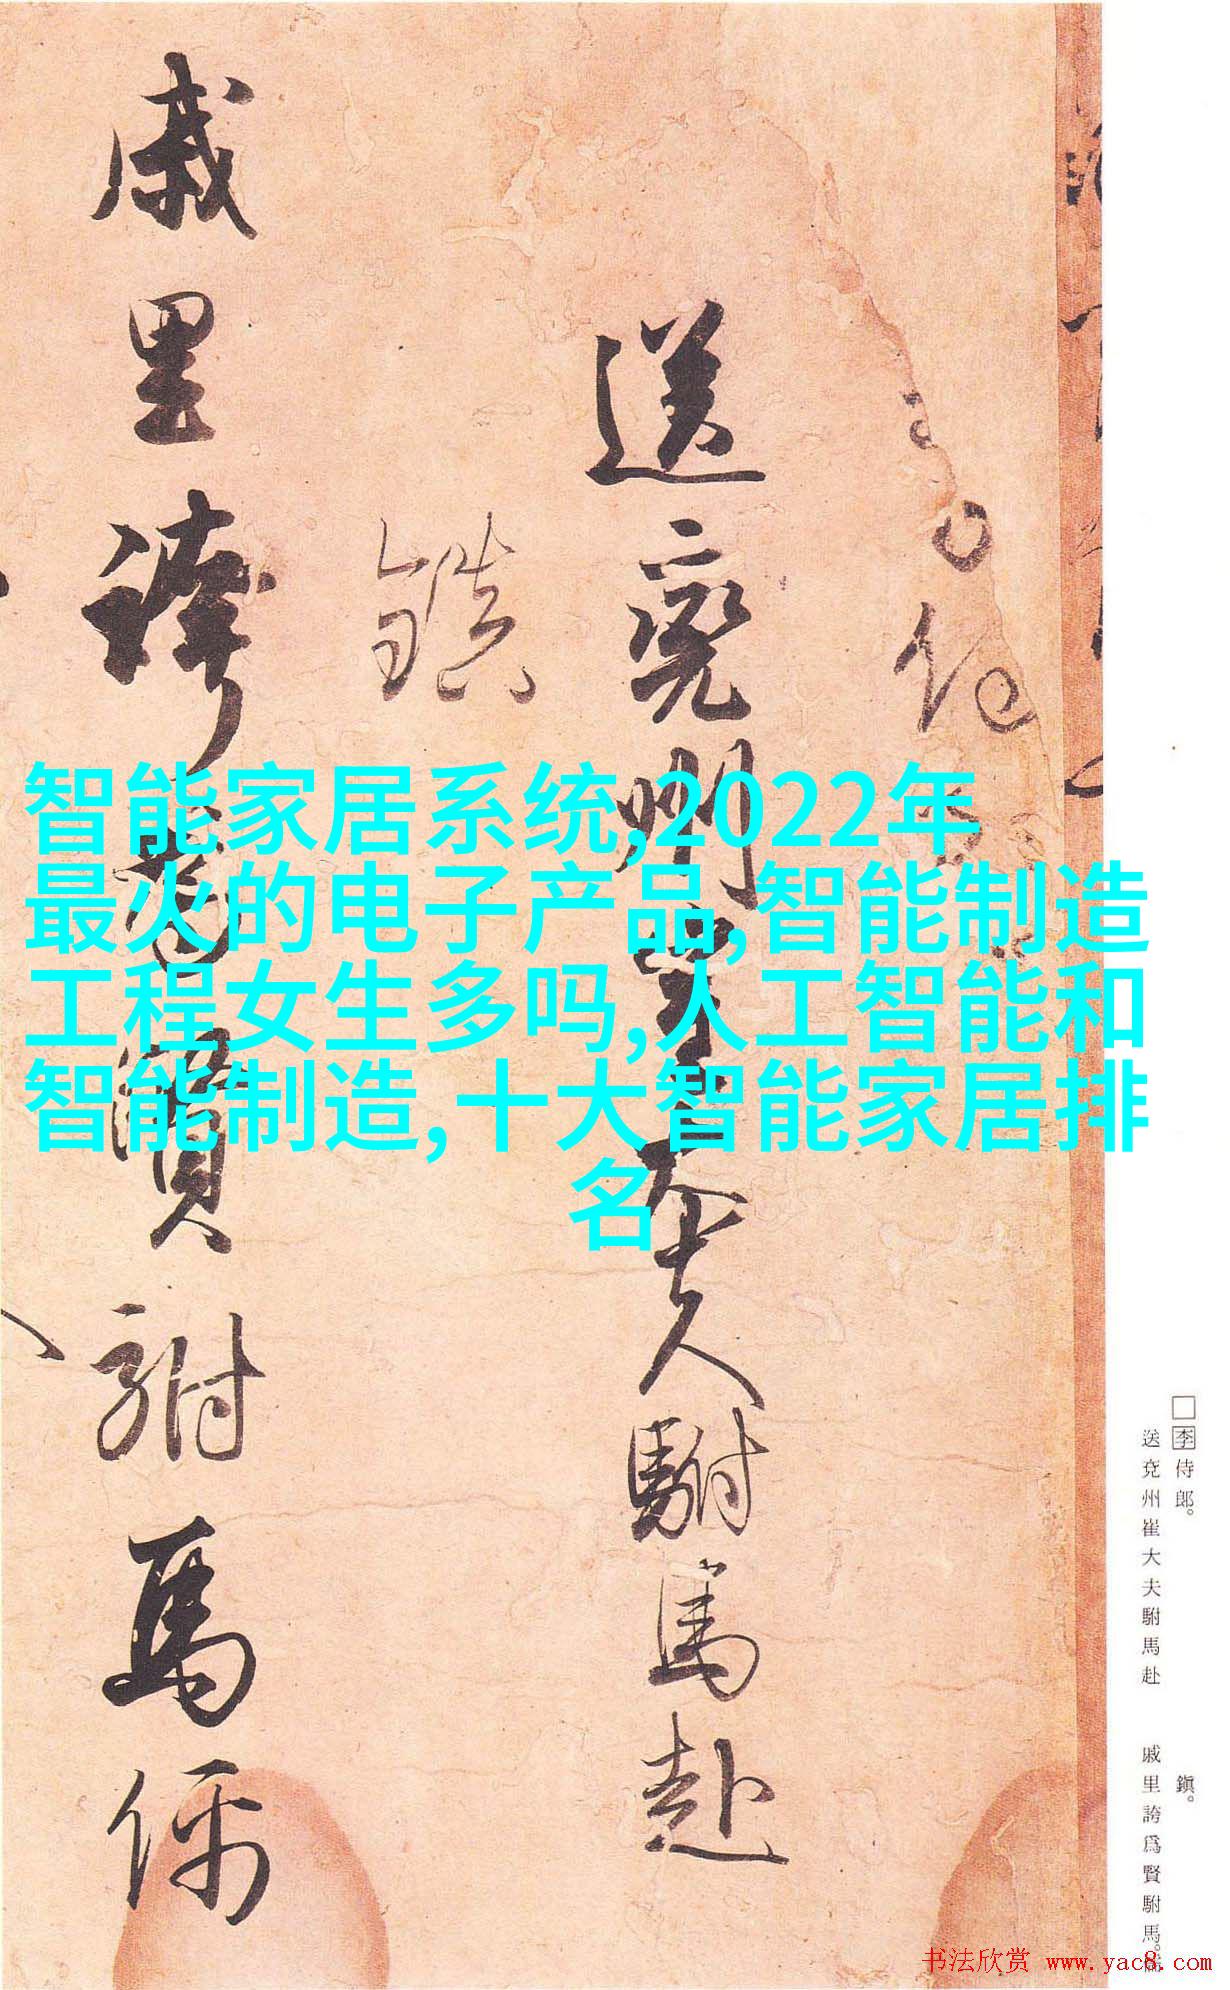 □李侍郎。
送兗州崔大夫駙馬赴
鎮。
戚里誇爲賢駙馬。儒
送兗州崔大夫駙馬赴
鎮
戚里誇爲賢駙馬儒
智能家居系统,2022年
最火的电子产品,智能制造
工程女生多吗,人工智能和
智能制造,十大智能家居排
名
书法欣赏 www.yac8.com